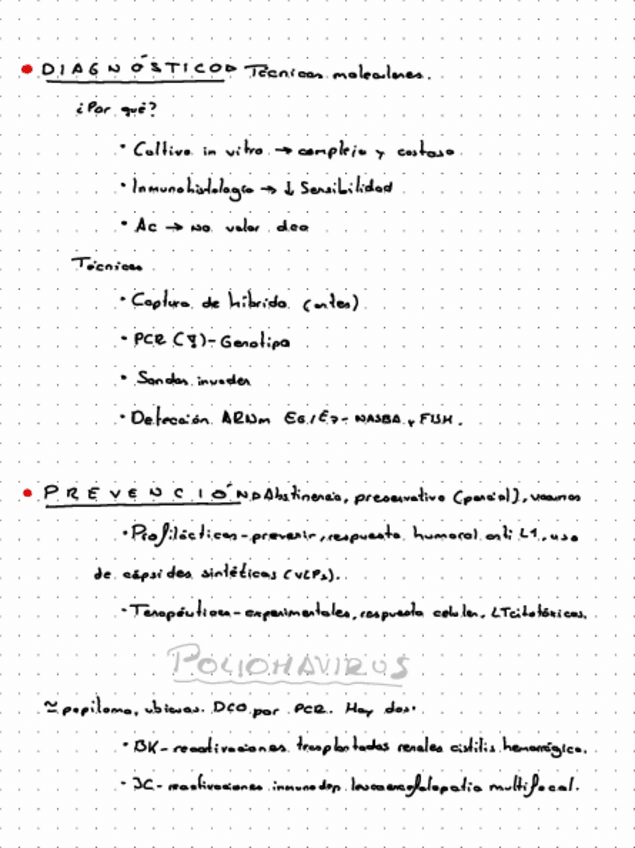 • DIAGNÓSTICO▷ Técnicas moleculares.
¿Por qué?
• Cultivo in vitro → complejo y costoso
• Inmunohistología → ↓ Sensibilidad
• Ac → No valor dco
Técnicas
• Captura de híbrido (antes)
• PCR (!)-Genotipo
• Sondas invader
• Detección ARNm E6/E7- NASBA y FISH.
• PREVENCIÓN▷Abstinencia, preservativo (parcial), vacunas
• Profilácticas-prevenir, respuesta humoral anti L1, uso
de cápsides sintéticas (VLPs).
• Terapéuticas-experimentales, respuesta celular, LTcitotóxicos.
POLIOMAVIRUS
≃ papiloma, ubicuos. DCO por PCR. Hay dos:
• BK- reactivaciones trasplantados renales cistitis hemorrágica.
• JC- reactivaciones inmunodep. leucoencefalopatia multifocal.